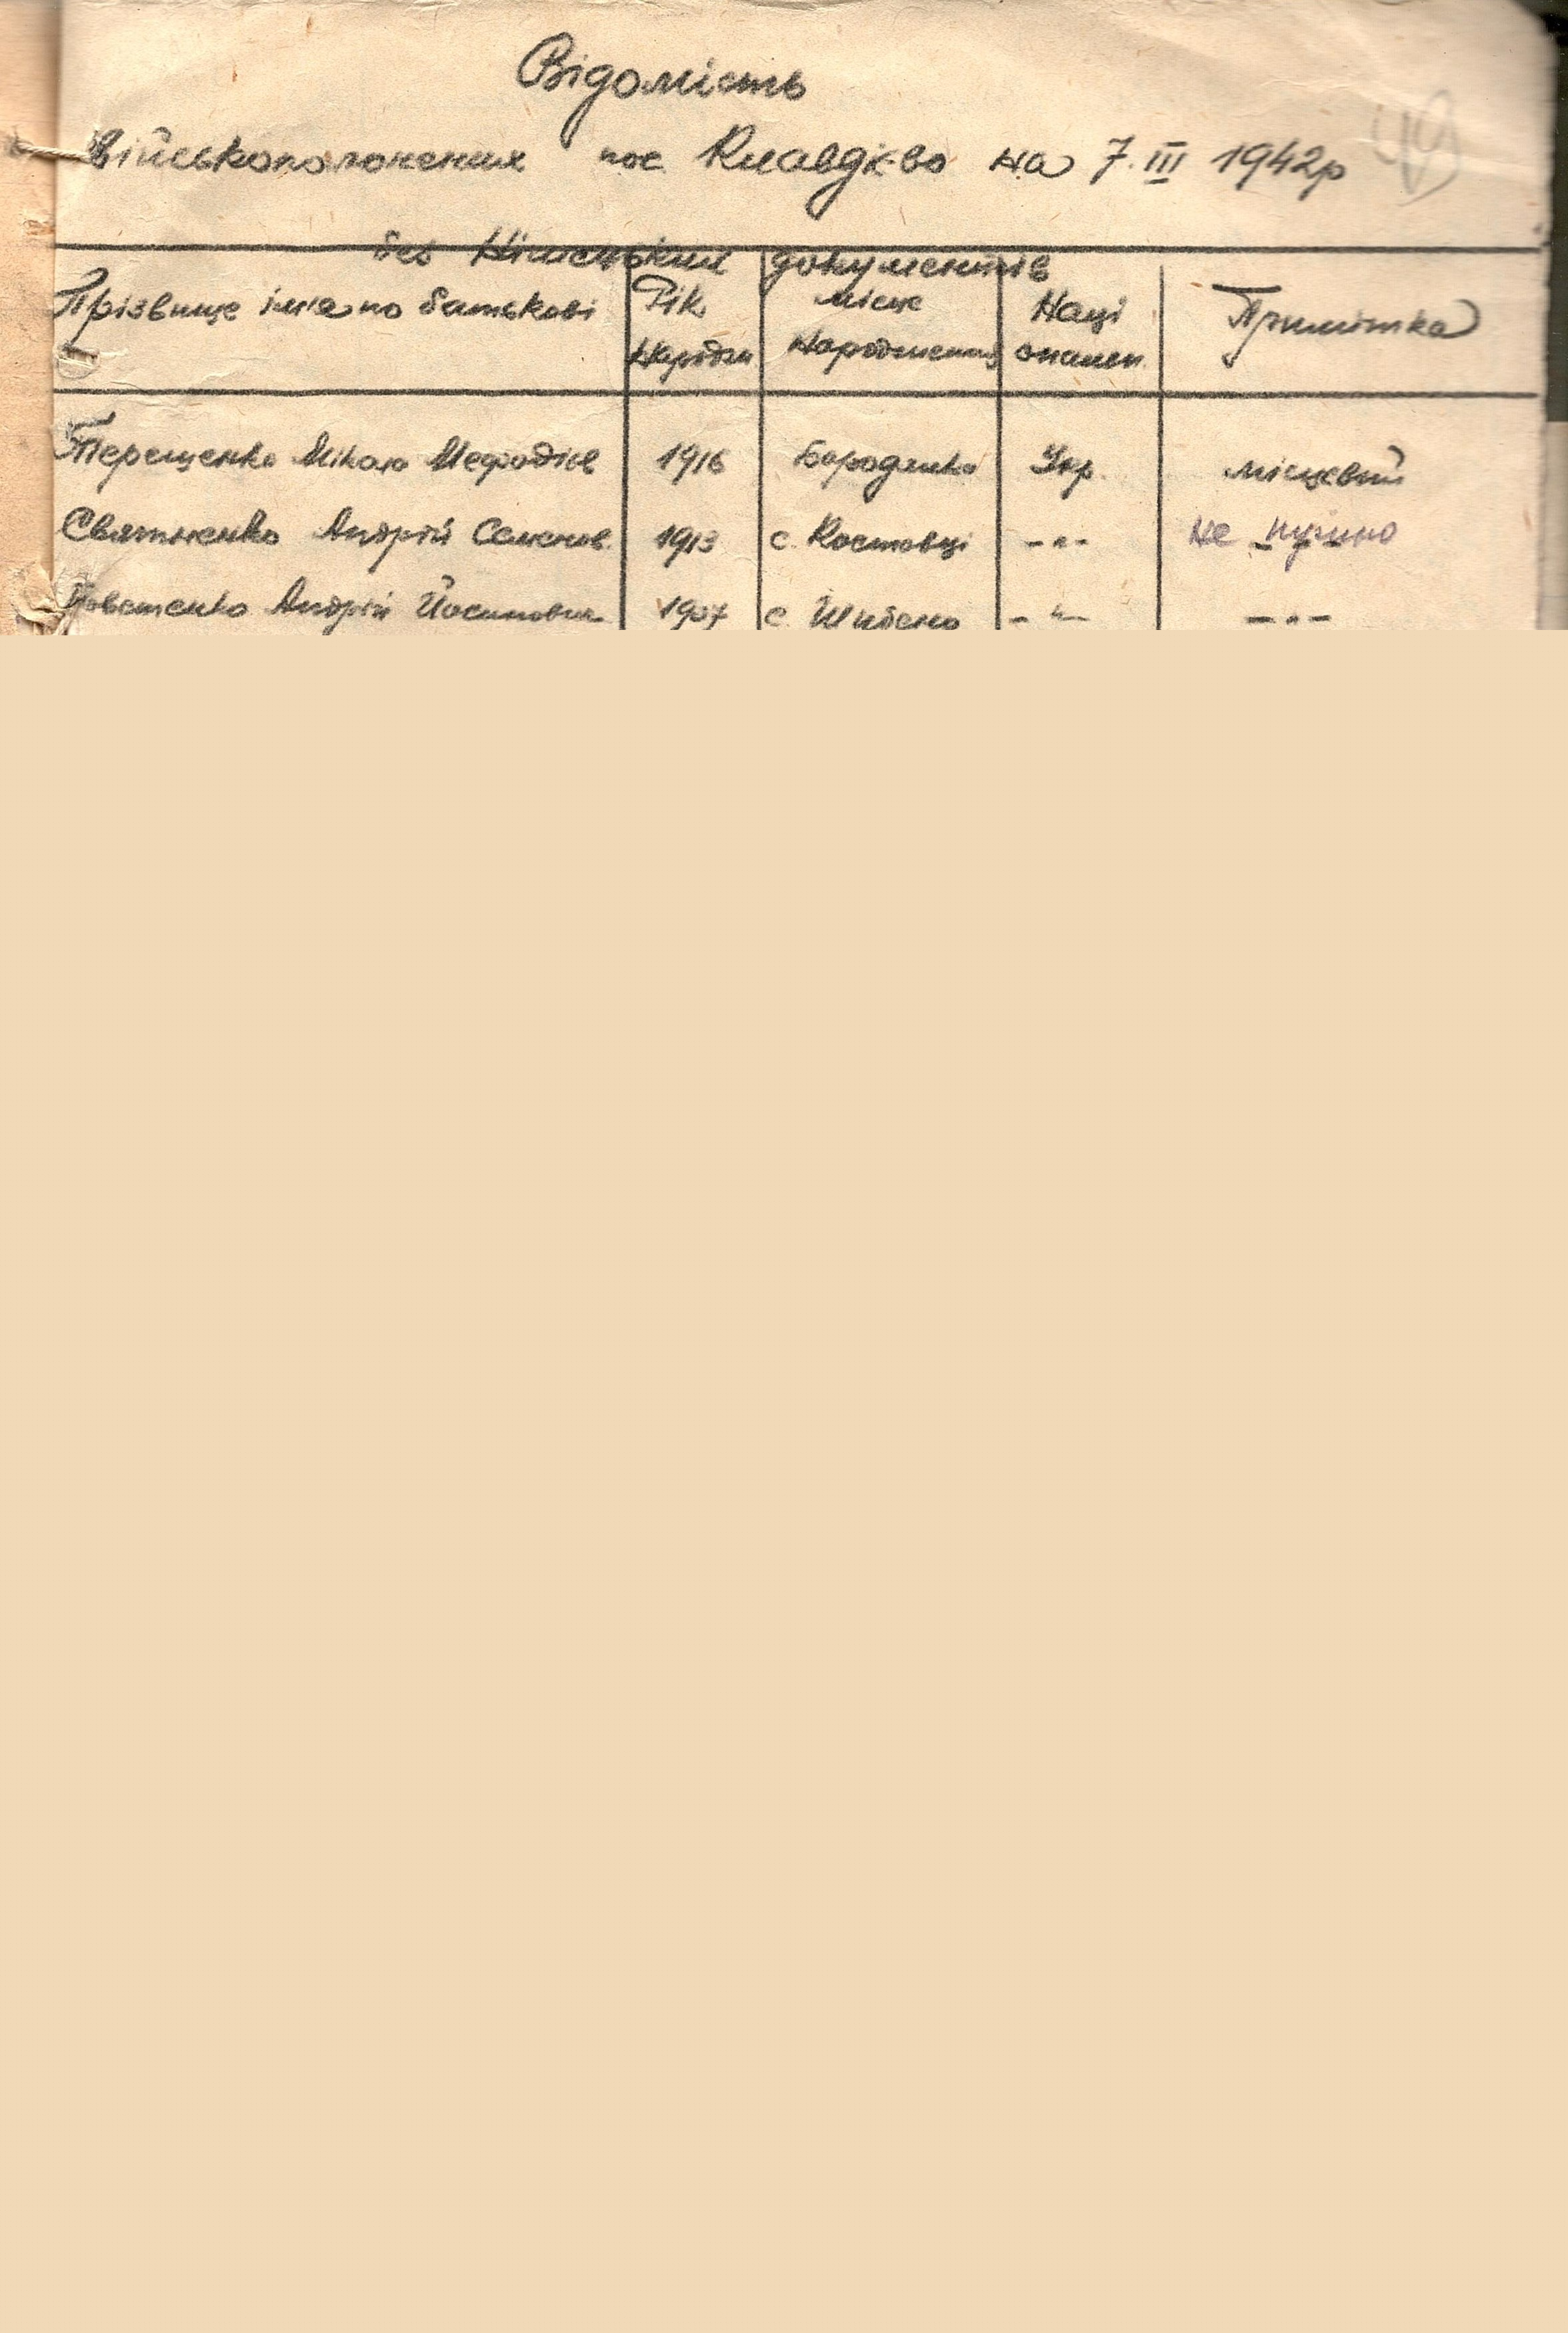 Відомість
військополонених пос Клавдієво на 7.III 1942р
49
без Німецьких документів
Прізвище імя по батькові Рік Народжен Місце Народження Наці оналєн Примітка
Терещенко Мікола Мефодієв 1916 Бородянка Укр. місцевий
Святненко Андрій Семенов. 1913 с. Костовці -"- Не нужно
Андрій Йосипович 1907 с. Шибене -"- -"-